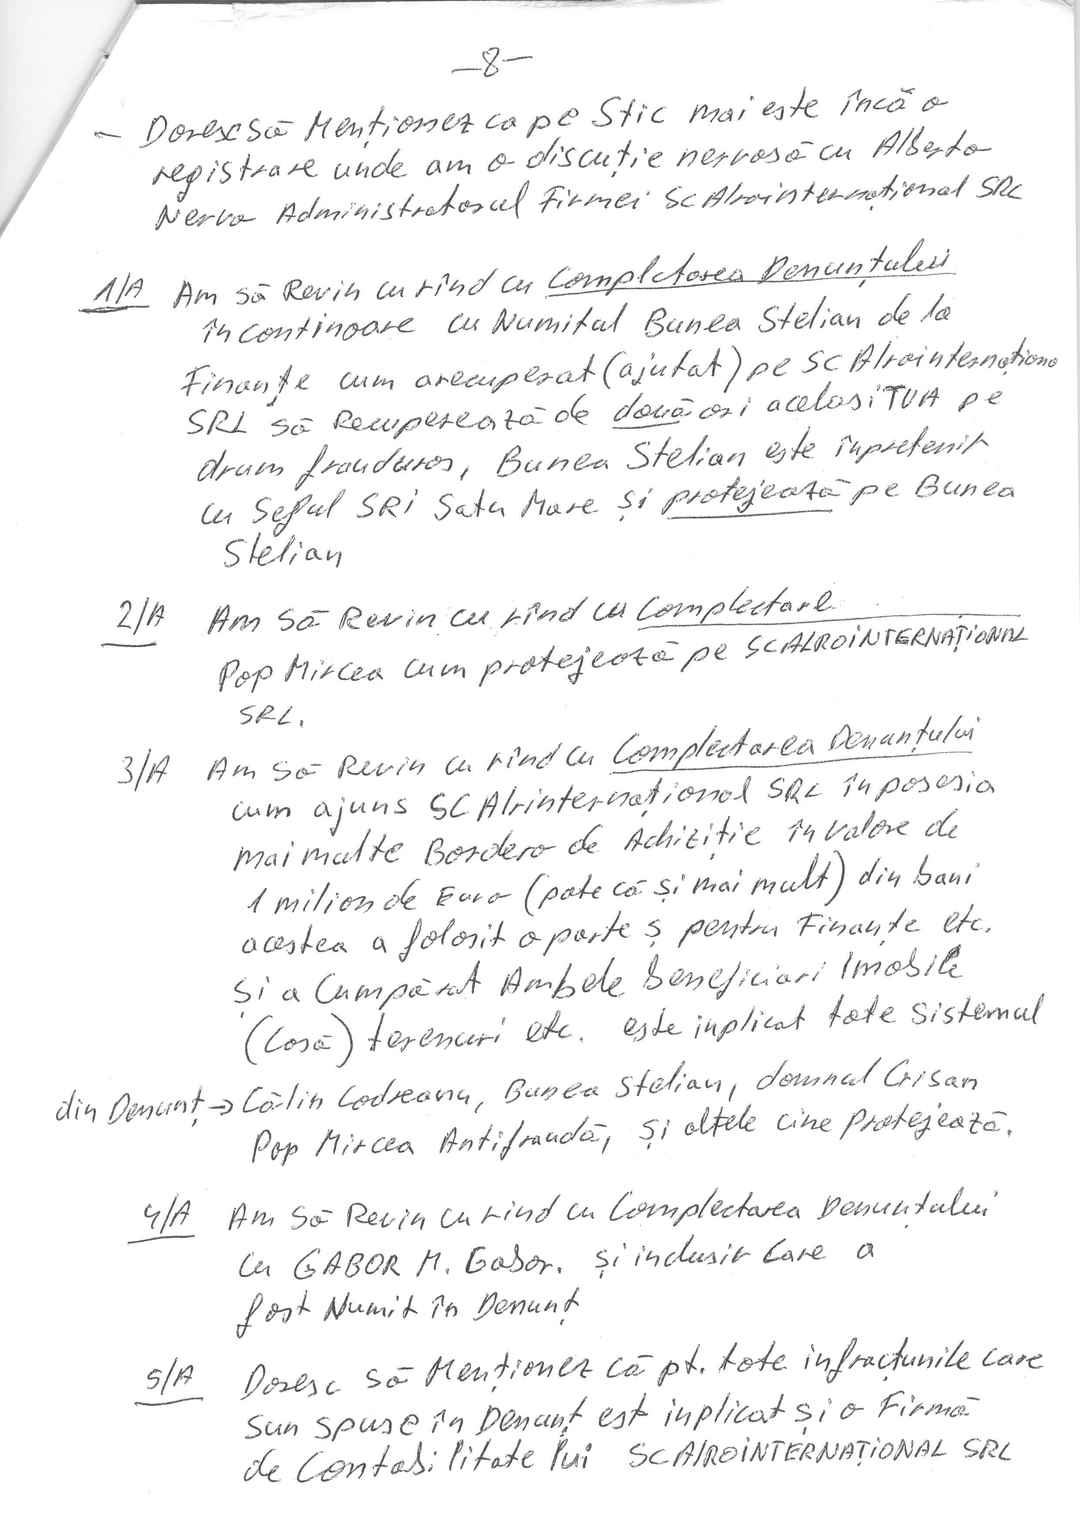 -8-
- Doresc să Menționez ca pe Stic mai este încă o
registrare unde am o discuție nervosă cu Alberto
Nerva Administratorul Firmei SC Alrointernațional SRL
1/A Am să Revin cu rînd cu Complctarea Denunțului
în continoare cu Numitul Bunea Stelian de la
Finanțe cum arecuperat (ajutat) pe SC Alrointernaționa
SRL să Recuperează de două ori acelasi TVA pe
drum frauduros, Bunea Stelian este înpretenit
cu Șeful SRI Satu Mare și protejează pe Bunea
Stelian
2/A Am să Revin cu rînd cu Complectare
Pop Mircea cum protejează pe SCALROINTERNAȚIONAL
SRL.
3/A Am să Revin cu rînd cu Complectarea Denunțului
cum ajuns SC Alrinternațional SRL în posesia
mai multe Bordero de Achiziție în valore de
1 milion de Euro (pote că și mai mult) din bani
acestea a folosit o parte ș pentru Finanțe etc.
și a Cumpărat Ambele beneficiari Imobile
(Casă) terenuri etc. este inplicat tote Sistemul
din Denunț → Călin Codreanu, Bunea Stelian, domnul Crisan
Pop Mircea Antifraudă, și altele cine Protejează.
4/A Am să Revin cu rînd cu Complectarea Denunțului
cu GABOR M. Gabor. și inclusiv Care a
fost Numit în Denunț
5/A Doresc să Menționez că pt. tote infracțunile care
sun spuse în Denunț est inplicat și o Firmă
de Contabilitate lui SC AlROINTERNAȚIONAL SRL